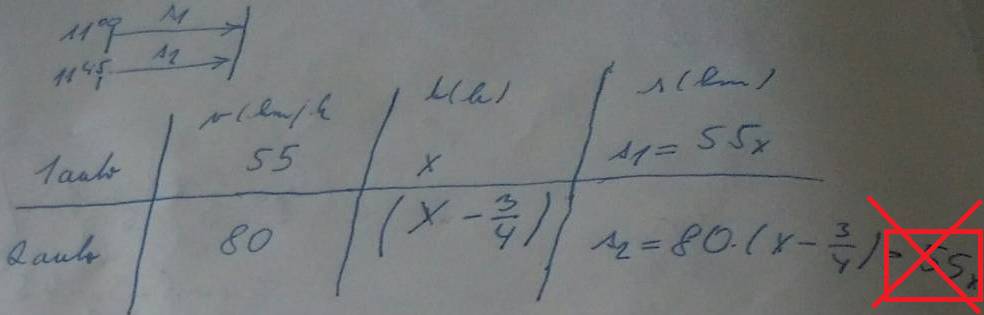 11⁰⁰ s₁
11⁴⁵ s₂
v(km/h t(h) s(km)
1auto 55 x s₁ = 55x
2auto 80 (x - 3/4) s₂ = 80·(x - 3/4) = 55x